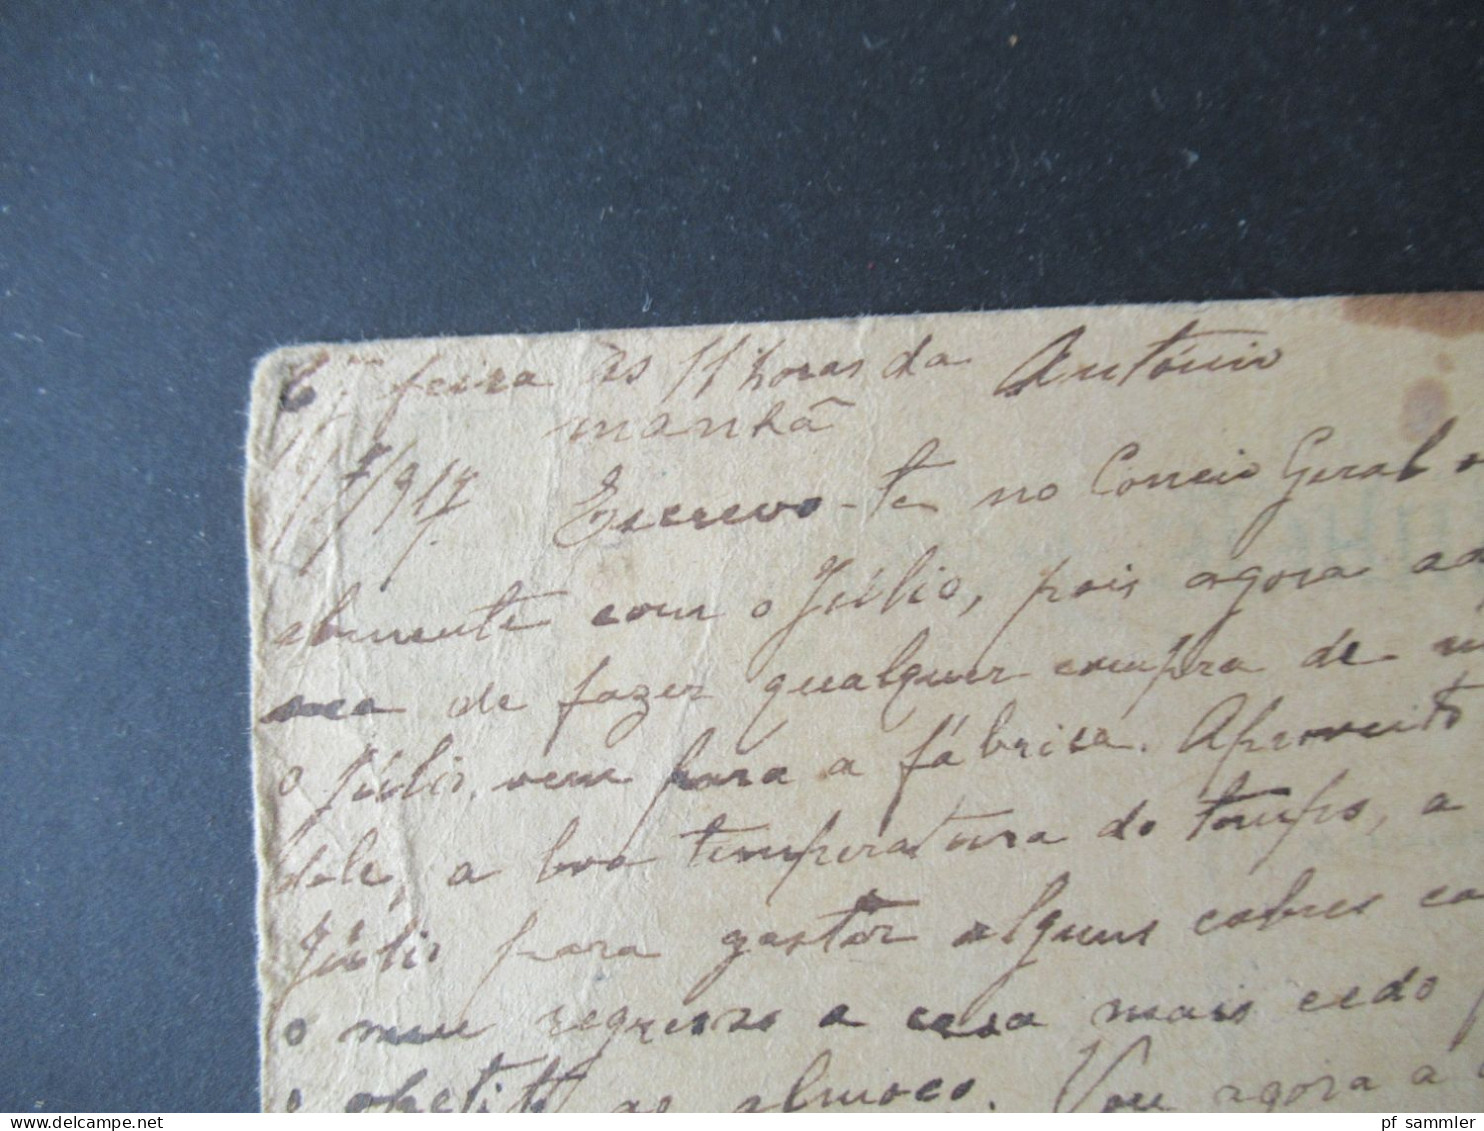 6ª feira às 11 horas da António
manhã
7/917. Escrevo-te no Correio Geral
com o Júlio, pois agora
de fazer qualquer compra de
o Júlio, vem para a fábrica. Aproveito
dole, a boa temperatura do tempo, a
Júlio para gastar alguns cobres
o meu regresso a casa mais cedo
o apetite ao almoço. Vou agora a
pf_sammler